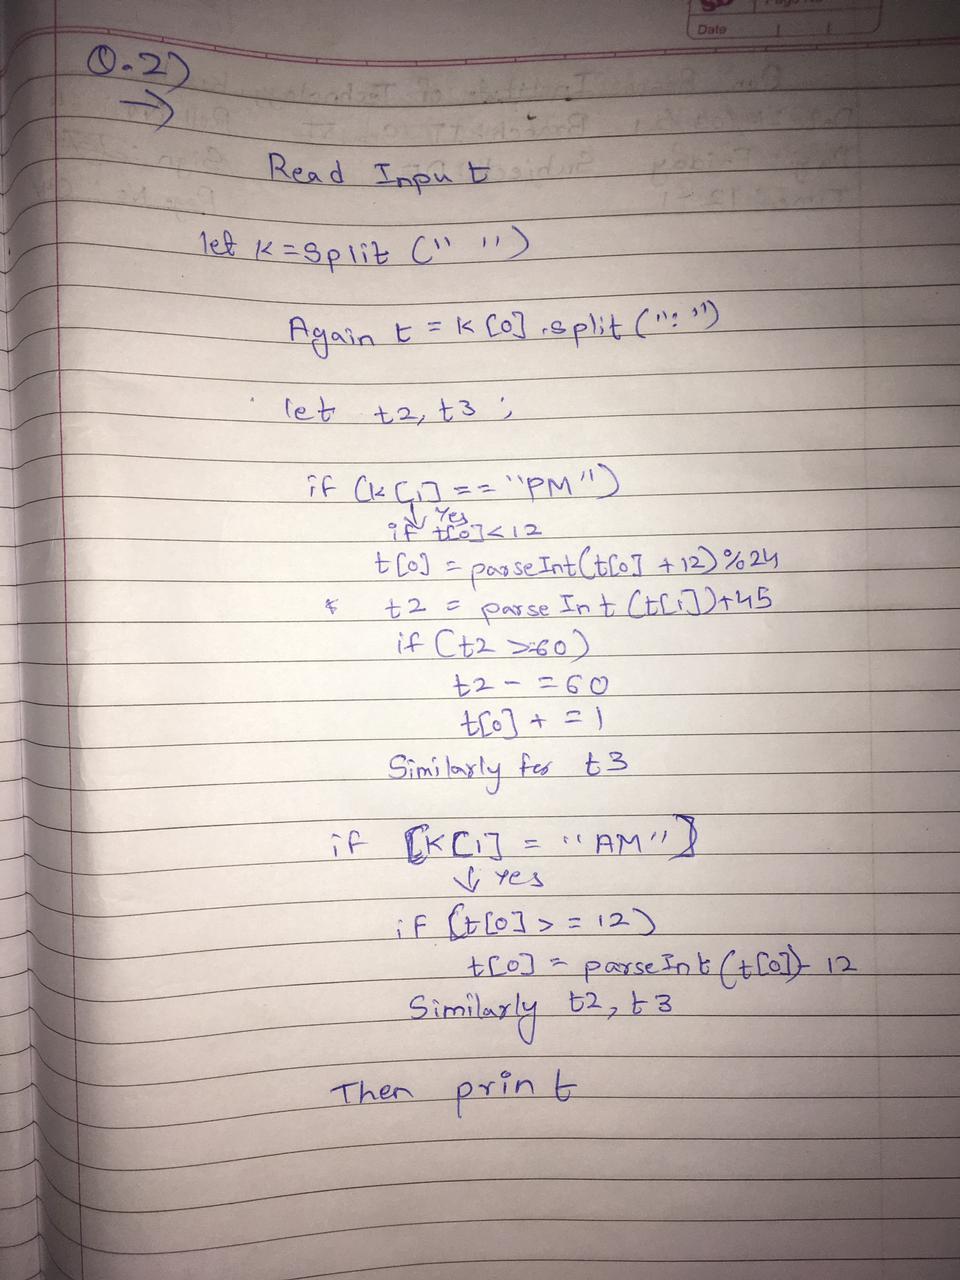 Date
Q.2)
→
Read Input
let k = split (" ")
Again t = k[0].split(":")
let t2, t3 ;
if (k[1] == "PM")
↓ Yes
if t[0]<12
t[0] = parseInt(t[0] +12)%24
t2 = parseInt(t[1])+45
if (t2 >=60)
t2 - = 60
t[0] + = 1
Similarly for t3
if [k[1] = "AM"]
↓ Yes
if (t[0] > = 12)
t[0] = parseInt(t[0])- 12
Similarly t2, t3
Then print